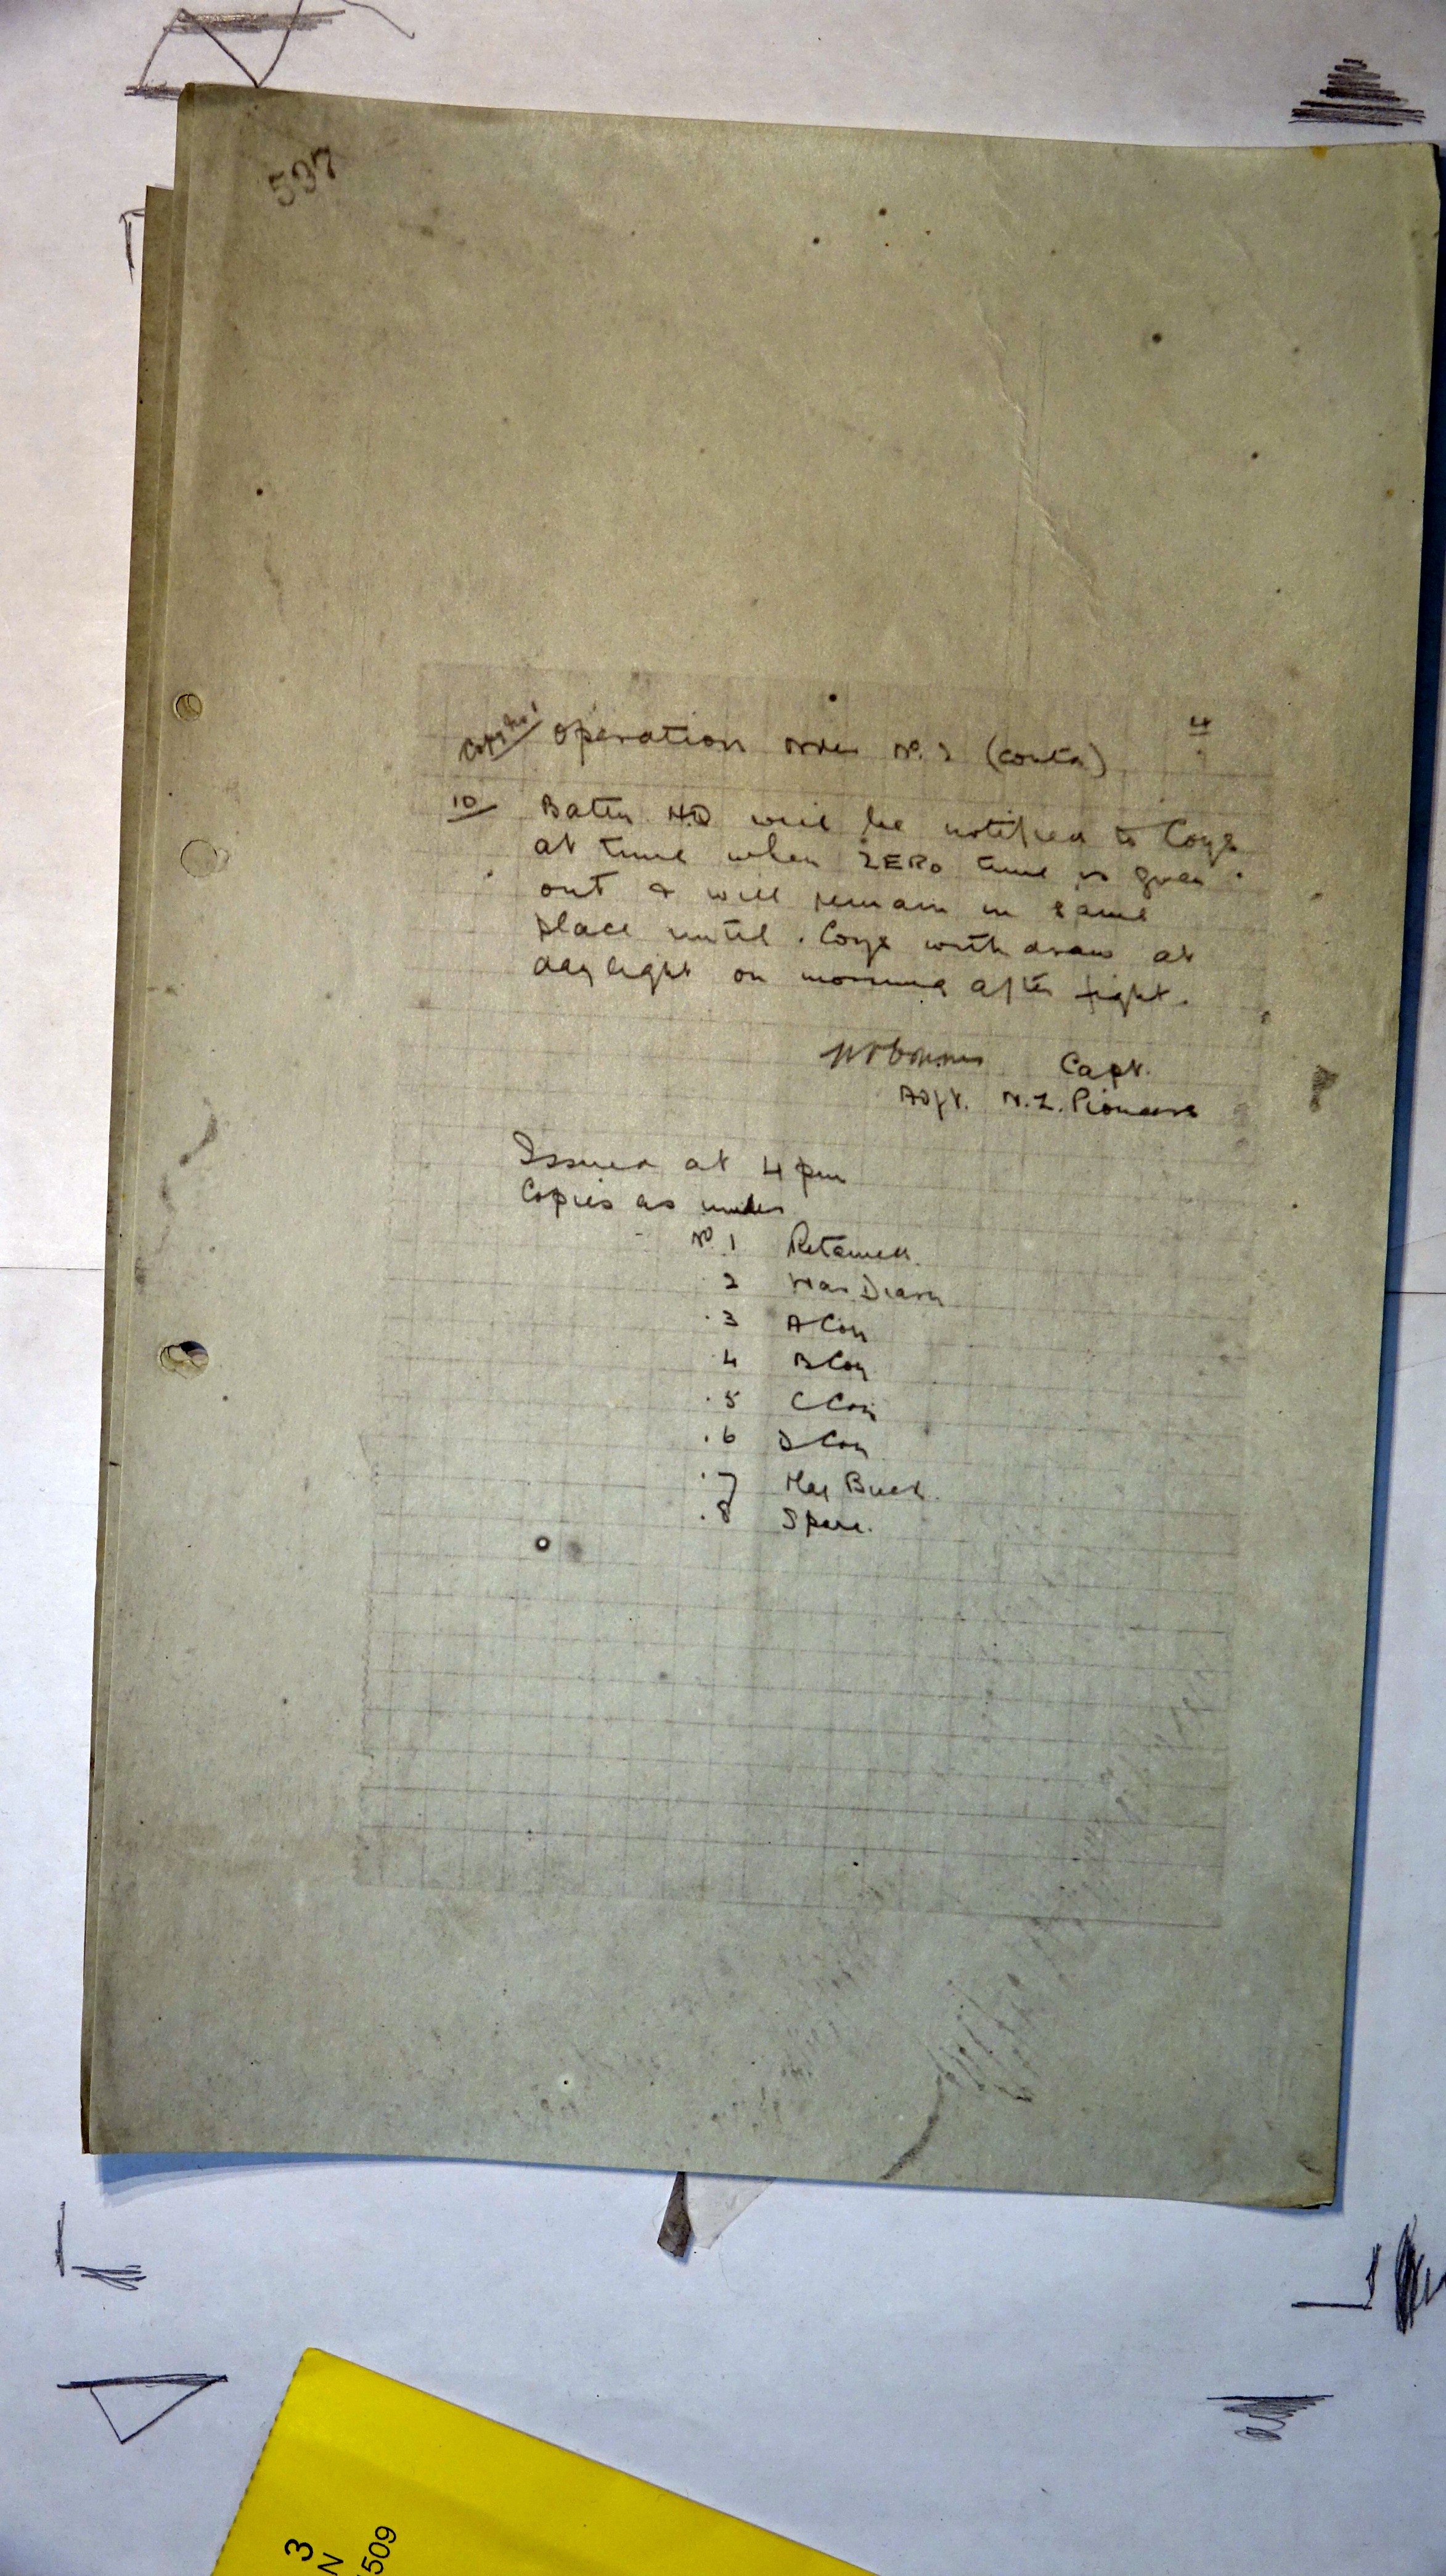 537
Copy No 1 Operation Order No. 2 (contd) 4
10 Battn H.Q will be notified to Coys
at time when ZERO time is given
out & will remain in same
place until Coys withdraw at
daylight on morning after fight.
Capt.
Adjt. N.Z. Pioneers
Issued at 4 pm
Copies as under
No 1 Retained.
2 War Diary
3 A Coy
4 B Coy
5 C Coy
6 D Coy
7 Maj Buck.
8 Spare.
3
N
509